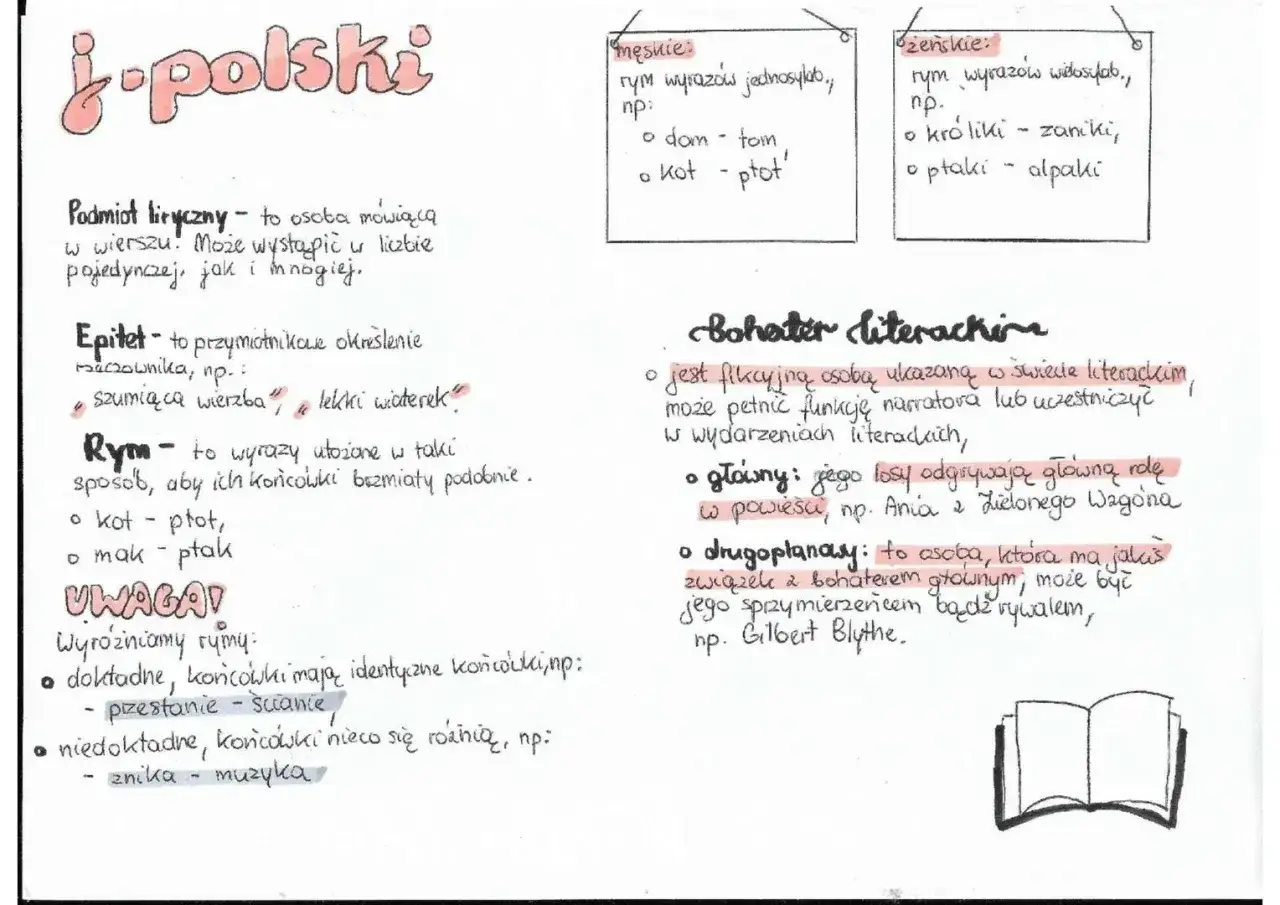 j. polski
Podmiot liryczny - to osoba mówiącą
w wierszu. Może wystąpić w liczbie
pojedynczej, jak i mnogiej.
Epitet - to przymiotnikowe określenie
rzeczownika, np.:
„szumiąca wierzba", „lekki wiaterek".
Rym - to wyrazy ułożone w taki
sposób, aby ich końcówki brzmiały podobnie.
kot - płot,
mak - ptak
UWAGA!
Wyróżniamy rymy:
dokładne, końcówki mają identyczne końcówki, np:
- przestanie - ścianie,
niedokładne, końcówki nieco się różnią, np:
- znika - muzyka
męskie:
rym wyrazów jednosylab.,
np:
dom - tom,
kot - płot
żeńskie:
rym wyrazów wielosylab.,
np.
króliki - zaniki,
ptaki - alpaki
Bohater literacki
jest fikcyjną osobą ukazaną w świecie literackim,
może pełnić funkcję narratora lub uczestniczyć
w wydarzeniach literackich,
główny: jego losy odgrywają główną rolę
w powieści, np. Ania z Zielonego Wzgórza
drugoplanowy: to osoba, która ma jakiś
związek z bohaterem głównym, może być
jego sprzymierzeńcem bądź rywalem,
np. Gilbert Blythe.